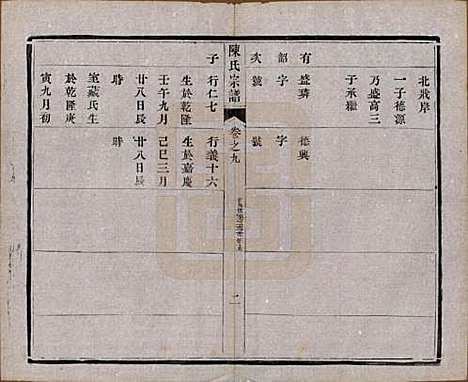 北戕岸
一子德源
乃盛高三
于承繼
有盛璘
德興
韶字
字
次號
號
陳氏宗譜
卷之九
二
子行仁七
行義十六
生於乾隆
生於嘉慶
壬午九月
己巳三月
廿八日辰
廿八日辰
時
時
室藏氏生
於乾隆庚
寅九月初